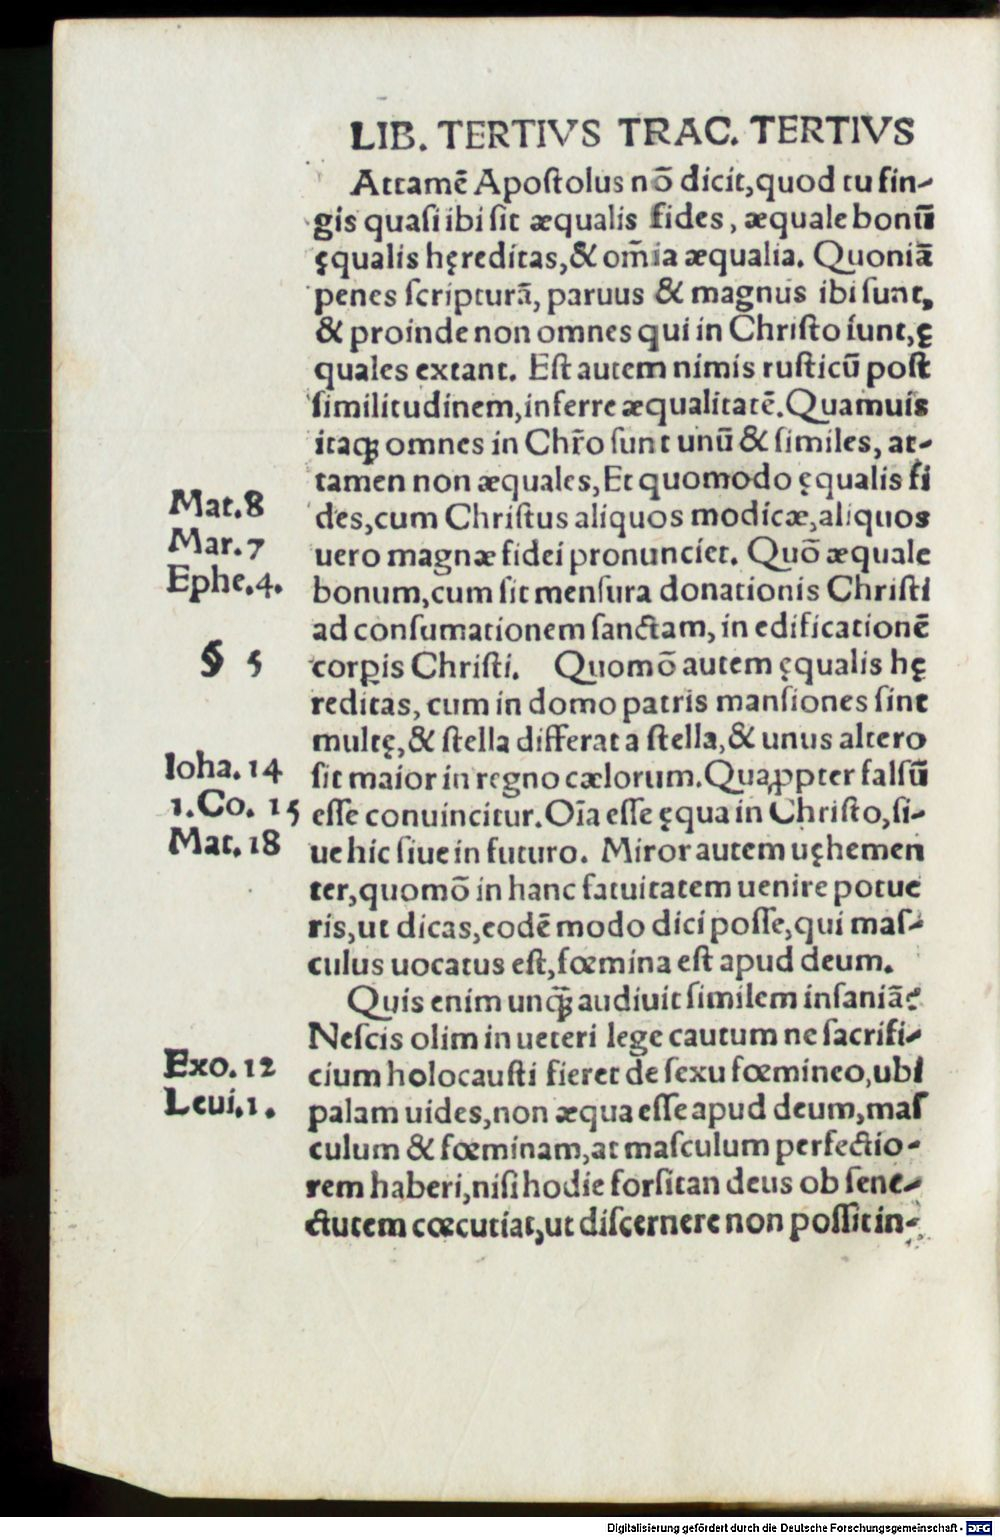 LIB. TERTIVS TRAC. TERTIVS
Attamẽ Apoſtolus nõ dicit,quod tu fin-
gis quaſi ibi ſit æqualis fides, æquale bonũ
ęqualis hęreditas,& om̃ia æqualia. Quoniã
penes ſcripturã, paruus & magnus ibi ſunt,
& proinde non omnes qui in Chriſto ſunt,ę
quales extant. Eſt autem nimis ruſticũ poſt
ſimilitudinem,inferre æqualitatẽ.Quamuis
itaqꝫ omnes in Chr̃o ſunt unũ & ſimiles, at-
tamen non æquales,Et quomodo ęqualis fi
Mat.8
des,cum Chriſtus aliquos modicæ,aliquos
Mar.7
uero magnæ fidei pronunciet. Quõ æquale
Ephe.4.
bonum,cum ſit menſura donationis Chriſti
ad conſumationem ſanctam, in edificationẽ
§ 5
corꝑis Chriſti. Quomõ autem ęqualis hę
reditas, cum in domo patris manſiones ſint
multę,& ſtella differat a ſtella,& unus altero
Ioha.14
ſit maior in regno cælorum.Quaꝓpter falſũ
1.Co. 15
eſſe conuincitur.Oĩa eſſe ęqua in Chriſto,ſi-
Mat.18
ue hic ſiue in futuro. Miror autem uęhemen
ter,quomõ in hanc fatuitatem uenire potue
ris,ut dicas,eodẽ modo dici poſſe,qui maſ-
culus uocatus eſt,fœmina eſt apud deum.
Quis enim unqꝫ̃ audiuit ſimilem inſaniã?
Neſcis olim in ueteri lege cautum ne ſacrifi-
Exo.12
cium holocauſti fieret de ſexu fœmineo,ubi
Leui.1.
palam uides,non æqua eſſe apud deum,maſ
culum & fœminam,at maſculum perfectio-
rem haberi,niſi hodie forſitan deus ob ſene-
ctutem cœcutiat,ut diſcernere non poſſit in-
Digitalisierung gefördert durch die Deutsche Forschungsgemeinschaft - DFG